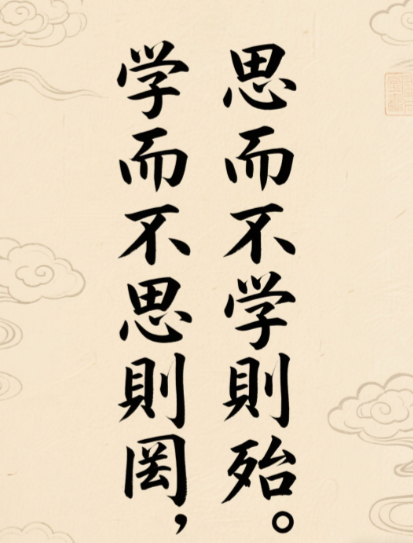 学而不思則罔，
思而不学則殆。